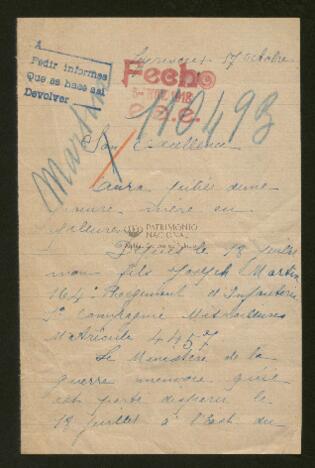 A
Pedir informes
Que se hace así
Devolver
17 Octobre
Fecho
1918
110493
Martin
Son Excellence
Aura pitiée d'une
pauvre mère en
pleurs
PATRIMONIO
NACIONAL
Depuis le 18 juillet
mon fils Joseph Martin
164e Regement d'Infanterie
Compagnie Mitrailleuses
Mle
Le Ministère de la
guerre m'envoie qu'il
est porté disparu le
18 juillet à l'Est du